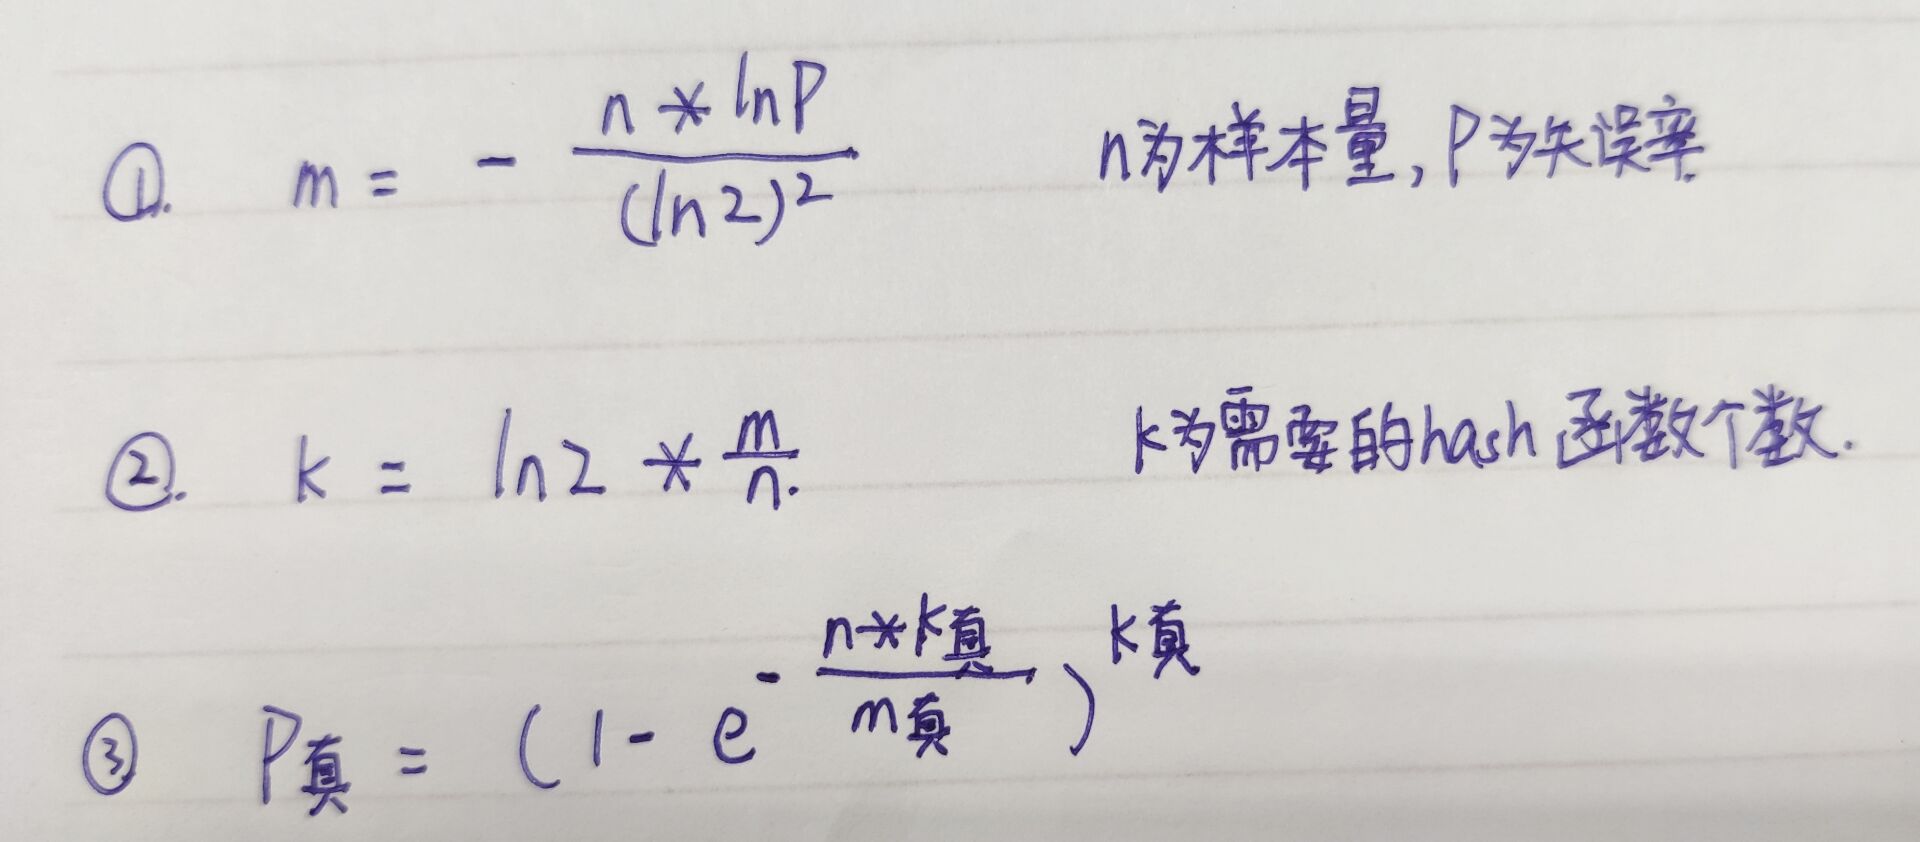 ①. m = - \frac{n * lnP}{(ln2)^2} n为样本量,P为失误率.
②. k = ln2 * \frac{m}{n}. k为需要的hash函数个数.
③ P真 = (1 - e^{-\frac{n*k真}{m真}})^{k真}